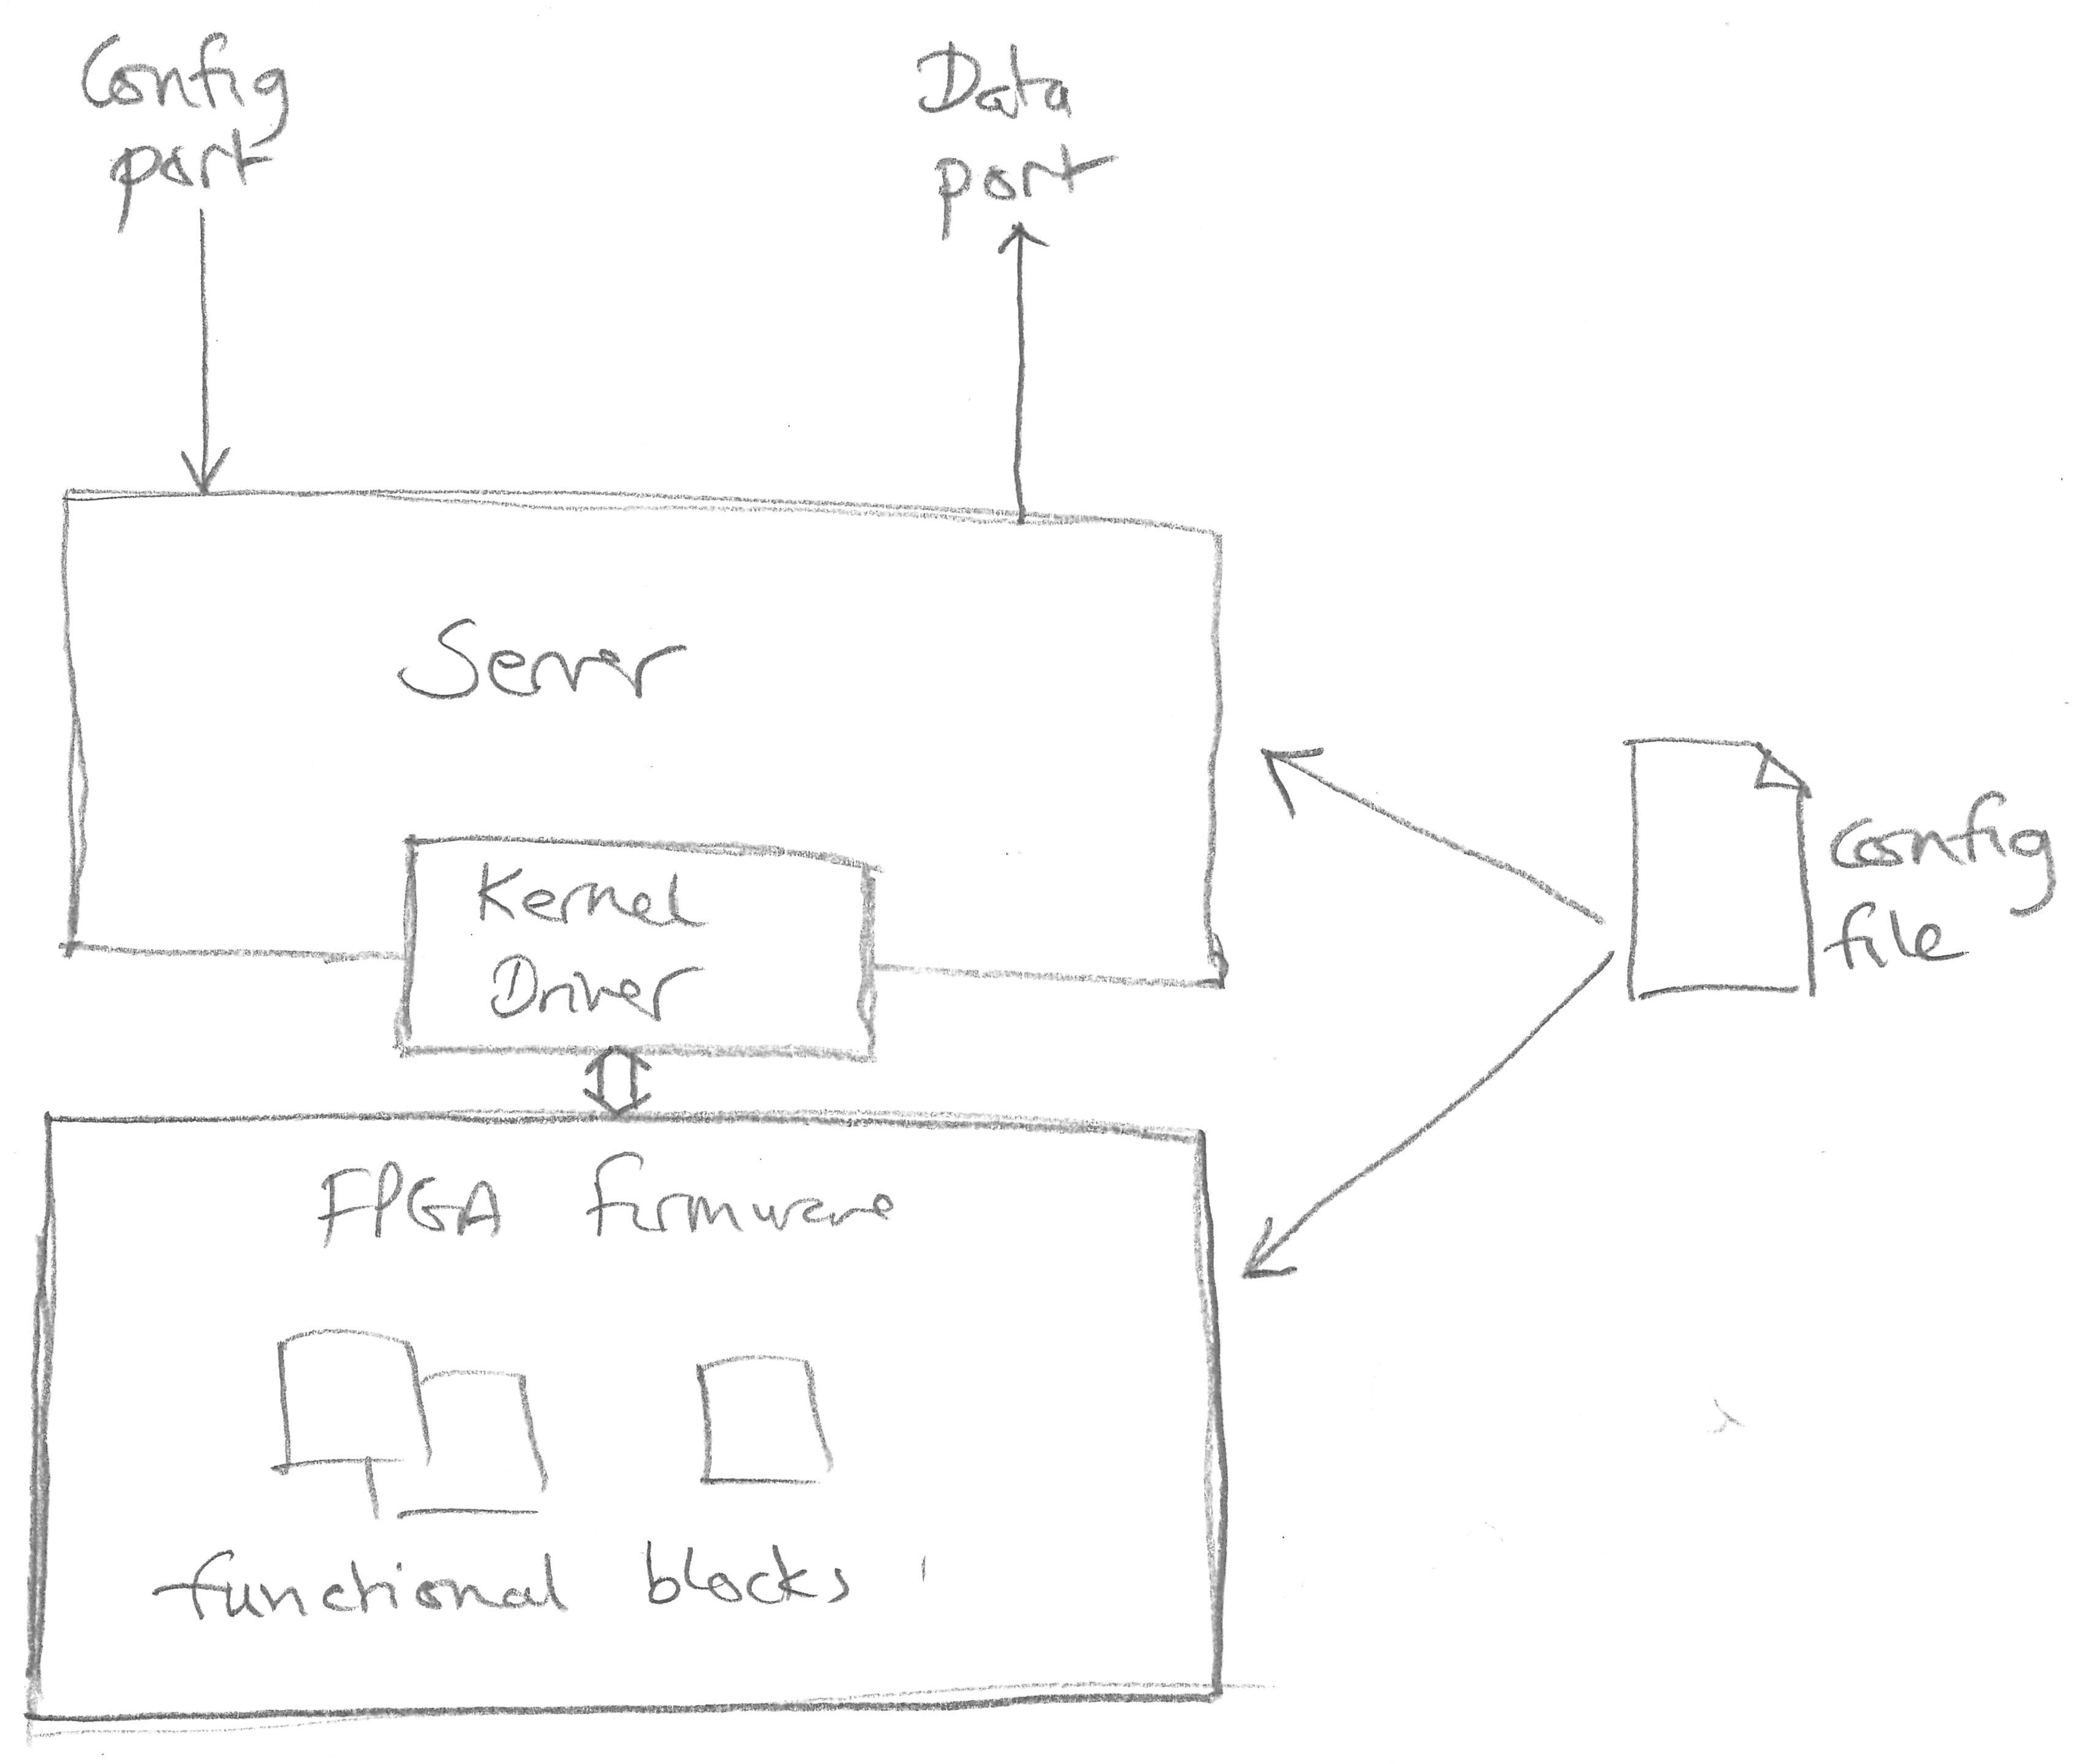 Config
port
Data
port
Server
Kernel
Driver
Config
file
FPGA firmware
functional blocks